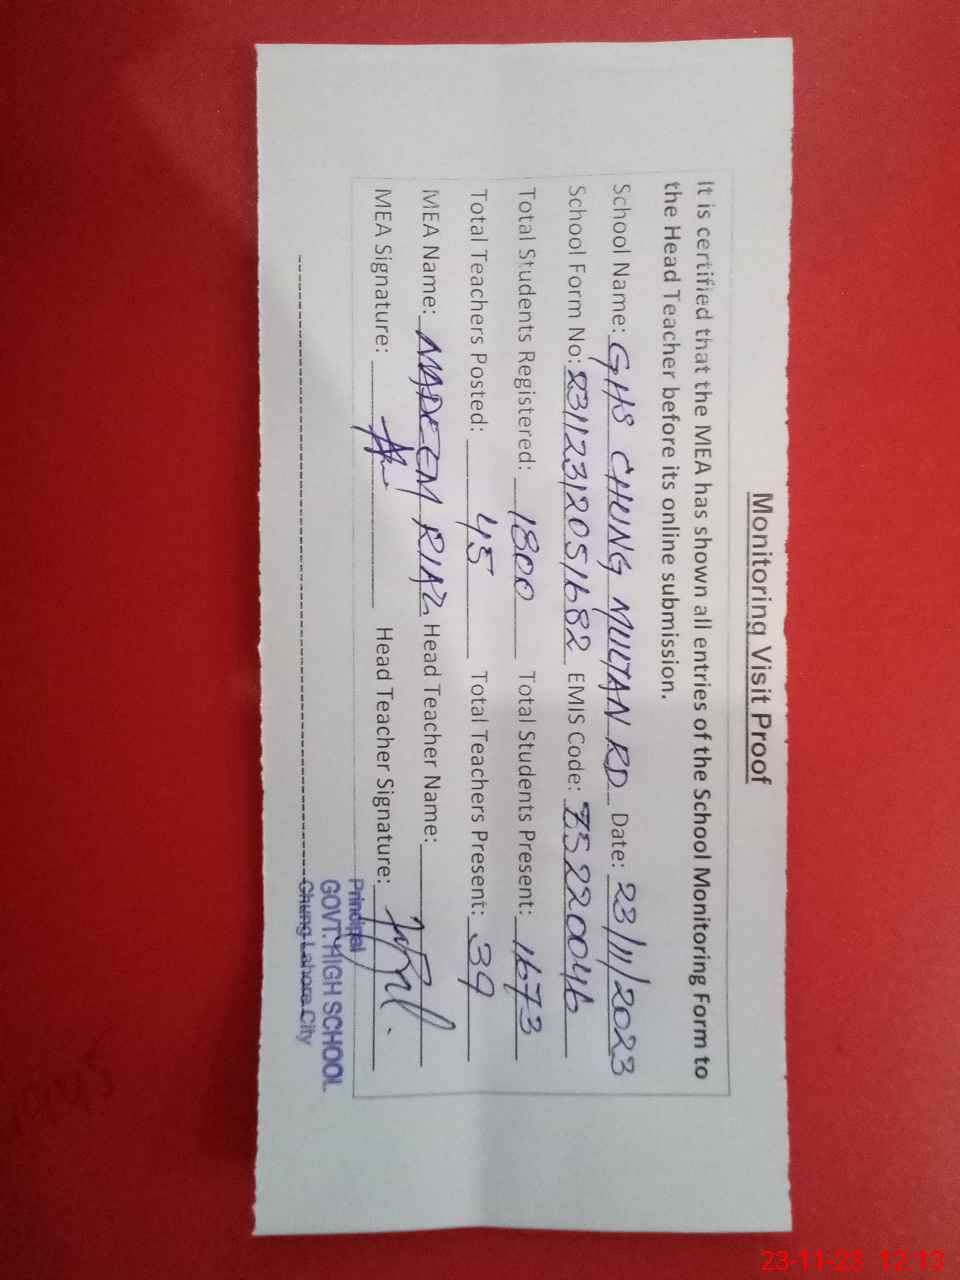 Monitoring Visit Proof
It is certified that the MEA has shown all entries of the School Monitoring Form to
the Head Teacher before its online submission.
School Name: GHS CHUNG MULTAN RD Date: 23/11/2023
School Form No: 23112312051682 EMIS Code: 35220046
Total Students Registered: 1800 Total Students Present: 1673
Total Teachers Posted: 45 Total Teachers Present: 39
MEA Name: NADEEM RIAZ Head Teacher Name:
MEA Signature: Head Teacher Signature:
Principal
GOVT. HIGH SCHOOL
Chung Lahore City
23-11-23 12:13